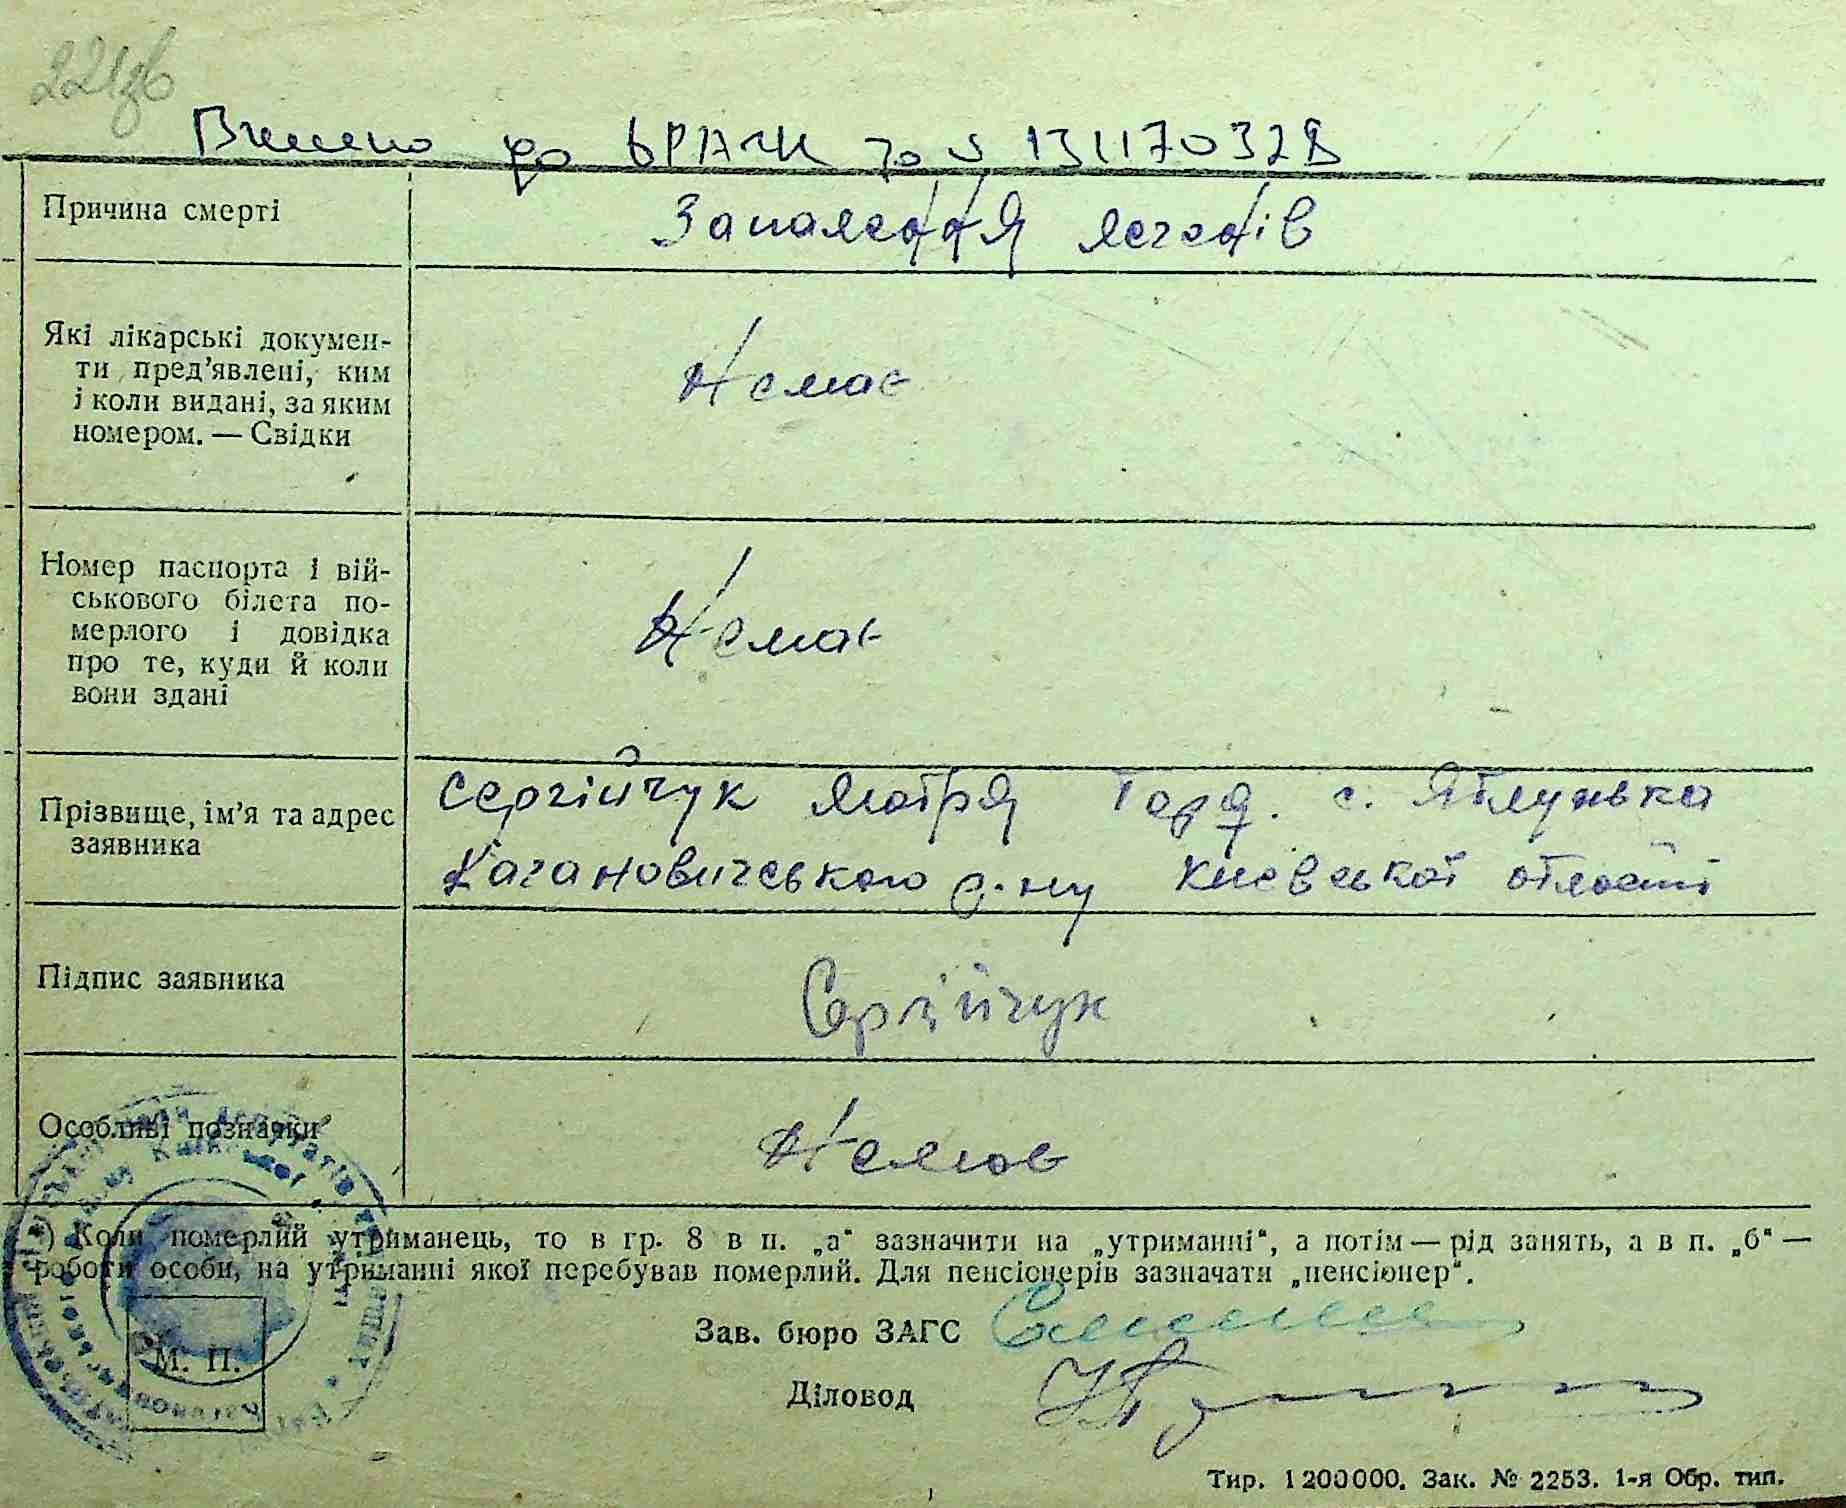 221зв
Внесено до ДРАЦС за № 13117032
Причина смерті
Запалення легенів
Які лікарські докумен-
ти пред'явлені, ким
і коли видані, за яким
номером. — Свідки
Немає
Номер паспорта і вій-
ськового білета по-
мерлого і довідка
про те, куди й коли
вони здані
Немає
Прізвище, ім'я та адрес
заявника
Сергійчук Мотря Горд. с. Яблунька
Кагановичського р-ну Київської області
Підпис заявника
Сергійчук
Особливі позначки
Немає
) Коли померлий утриманець, то в гр. 8 в п. „а“ зазначити на „утриманні“, а потім — рід занять, а в п. „б“ —
роботи особи, на утриманні якої перебував померлий. Для пенсіонерів зазначати „пенсіонер“.
Зав. бюро ЗАГС
Діловод
М. П.
Тир. 1 200 000. Зак. № 2253. 1-я Обр. тип.